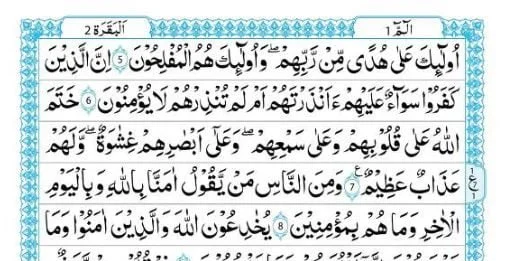 الٓمّٓ ١ البقرة ٢
اُولٰٓئِكَ عَلٰى هُدًى مِّنْ رَّبِّهِمْ ۖ وَاُولٰٓئِكَ هُمُ الْمُفْلِحُوْنَ ٥ اِنَّ الَّذِيْنَ
كَفَرُوْا سَوَآءٌ عَلَيْهِمْ ءَاَنْذَرْتَهُمْ اَمْ لَمْ تُنْذِرْهُمْ لَا يُؤْمِنُوْنَ ٦ خَتَمَ
اللّٰهُ عَلٰى قُلُوْبِهِمْ وَعَلٰى سَمْعِهِمْ ۖ وَعَلٰٓى اَبْصَارِهِمْ غِشَاوَةٌ ۖ وَّلَهُمْ
عَذَابٌ عَظِيْمٌ ٧ وَمِنَ النَّاسِ مَنْ يَّقُوْلُ اٰمَنَّا بِاللّٰهِ وَبِالْيَوْمِ
الْاٰخِرِ وَمَا هُمْ بِمُؤْمِنِيْنَ ٨ يُخٰدِعُوْنَ اللّٰهَ وَالَّذِيْنَ اٰمَنُوْا وَمَا